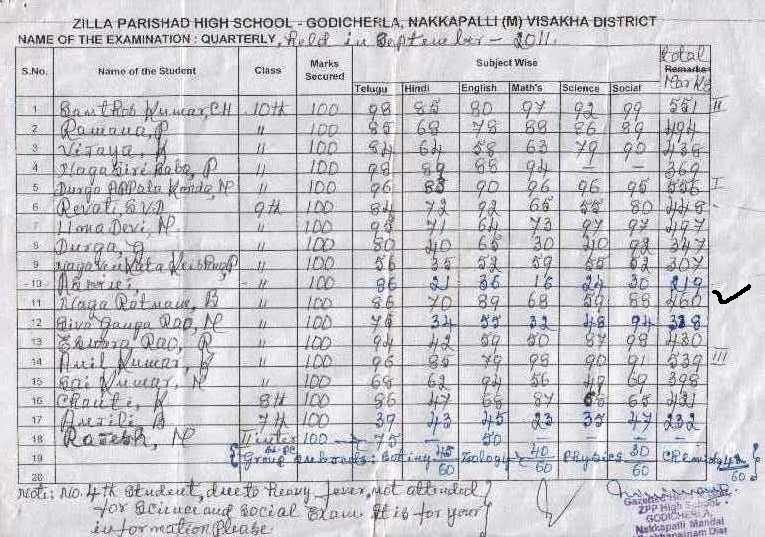 ZILLA PARISHAD HIGH SCHOOL - GODICHERLA, NAKKAPALLI (M) VISAKHA DISTRICT
NAME OF THE EXAMINATION : QUARTERLY, held in September - 2011.
S.No. Name of the Student Class Marks Secured Subject Wise Total Remarks Marks
Telugu Hindi English Math's Science Social
1 Kumar, CH 10th 100 98 85 80 97 92 99 551 II
2 Ramana, P " 100 85 68 78 88 86 89 494
3 Vijaya, " 100 84 64 58 63 79 90 438
4 Babu, P " 100 98 89 88 94 - - 369
5 Durga APPala Konda, N " 100 96 83 90 96 96 95 556 I
6 Revati 9th 100 84 72 92 65 55 80 448
7 Uma Devi, N " 100 95 71 64 73 97 97 497
8 Durga, " 100 80 40 65 30 40 92 347
9 P " 100 56 35 52 59 55 52 307
10 " 100 86 21 36 16 24 30 219
11 Naga Ratnam, B " 100 86 70 89 68 59 88 460
12 Siva Ganga Rao, N " 100 75 34 55 32 48 94 338
13 Eswara Rao, R " 100 94 42 59 50 87 98 430
14 Anil Kumar, " 100 96 85 79 98 90 91 539 III
15 Sai Kumar, N " 100 68 62 94 56 49 69 398
16 K 8th 100 86 47 66 87 65 431
17 Anjili, B 7th 100 39 43 45 23 35 47 232
18 Rajesh, N II inter 100 → 75 - 50 - - -
19 Bi.PC Group subjects: Botiny 45/60 Zoology → 40/60 Physics 30/60 Chemistry /60
20
Note: No. 4th Student, due to heavy fever, not attended
for Science and Social Exam. It is for your
information please
Gazetted
ZPP High School
GODICHERLA
Nakkapalli Mandal
Visakhapatnam Dist